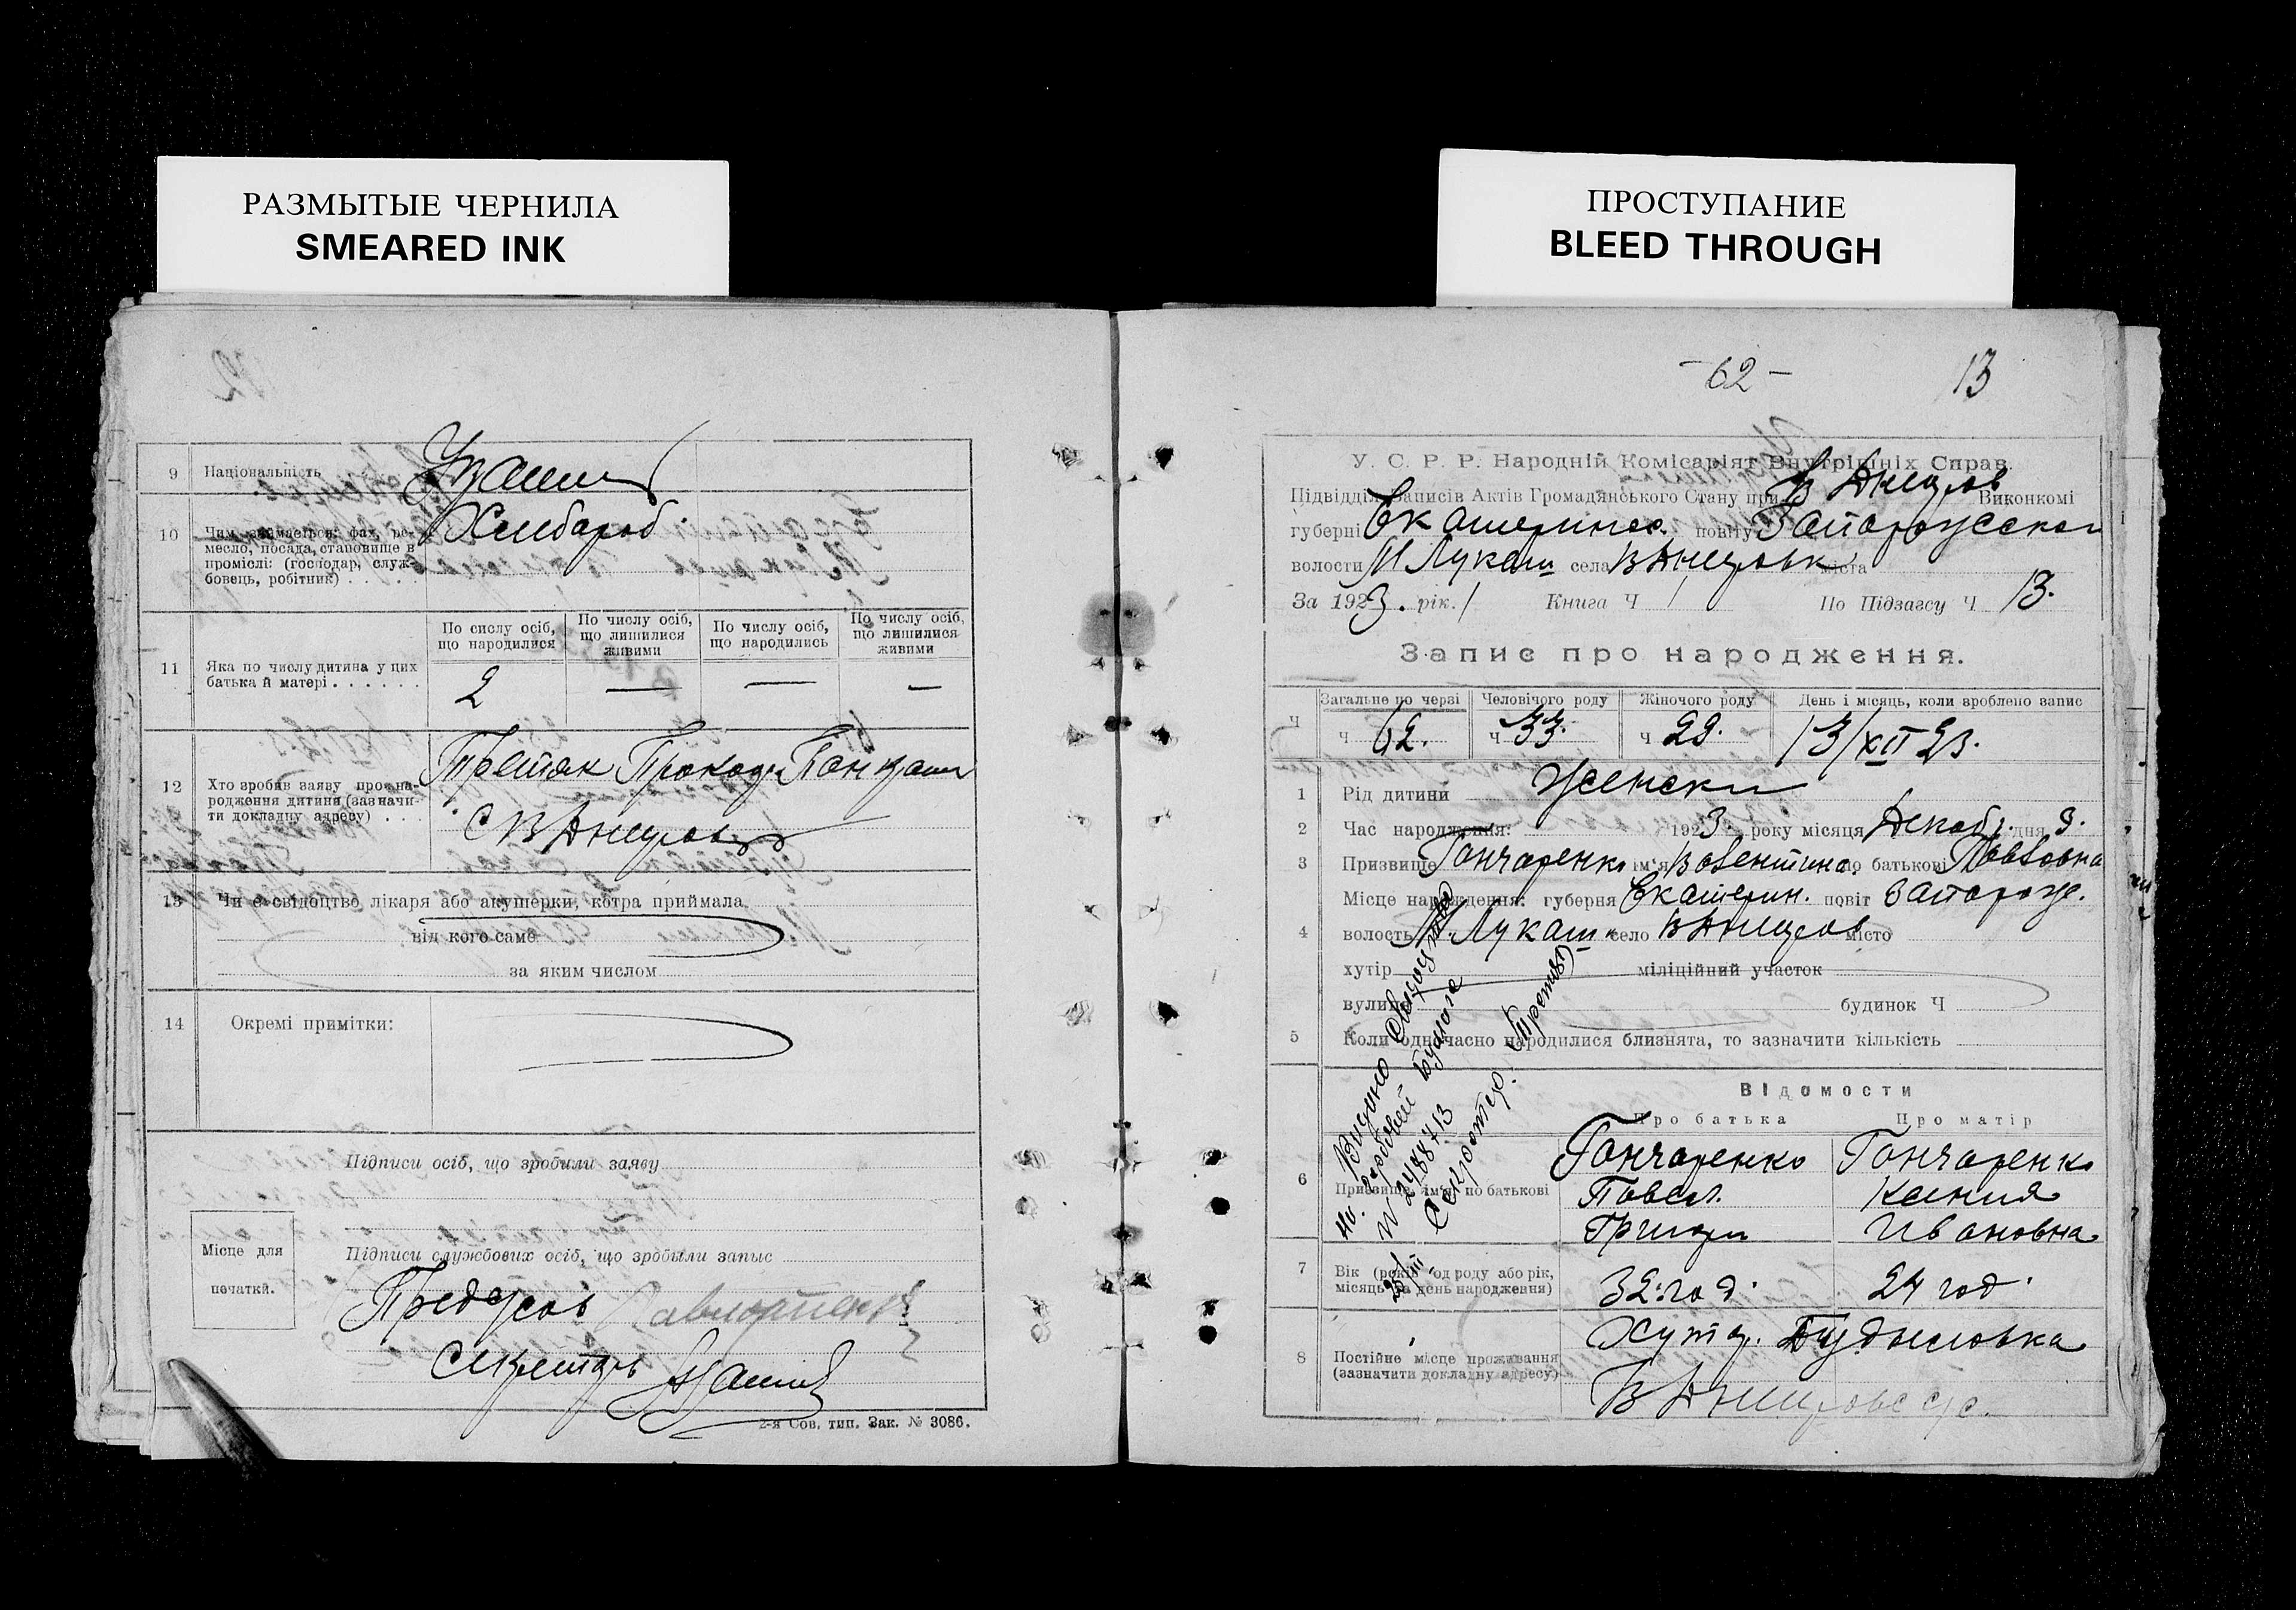 РАЗМЫТЫЕ ЧЕРНИЛА
SMEARED INK
9 Національність
10 Чим займається: фах, ре-
месло, посада, становище в
проміслі: (господар, служ-
бовець, робітник)
Хлибароб
По числу осіб, що народилися
По числу осіб, що лишилися живими
По числу осіб, що народились
По числу осіб, що лишилися живими
11 Яка по числу дитина у цих
батька й матері
2 — — —
12 Хто зробив заяву про на-
родження дитини (зазначи-
ти докладну адресу)
Третяк Прокоп
13 Чи є свідоцтво лікаря або акушерки, котра приймала
від кого саме
за яким числом
14 Окремі примітки:
Підписи осіб, що зробили заяву
Місце для
печатки.
Підписи службових осіб, що зробили запыс
Секретарь
2-я Сов. тип. Зак. № 3086.
ПРОСТУПАНИЕ
BLEED THROUGH
-62- 13
У. С. Р. Р. Народній Комісаріят Внутрішніх Справ.
Підвідділ Записів Актів Громадянського Стану при В Днепров Виконкомі
губерні Екатеринос. повіту Запорожской
волости М Лукаш села В Днепровк міста
За 1923. рік. Книга Ч По Підзагсу Ч 13.
Запис про народження.
Загальне по черзі Человічого роду Жіночого роду День і місяць, коли зроблено запис
Ч ч 62. ч 33. ч 29. 13/XII 23.
1 Рід дитини Женски
2 Час народження: 1923 року місяця Декаб. дня 9.
3 Призвище Гончаренко ім'я Валентина по батькові Павловна
Місце народження: губерня Екатерин. повіт Запорож.
4 волость М. Лукаш село В Днепров місто
хутір міліційний участок
вулиця будинок Ч
5 Коли одночасно народилися близнята, то зазначити кількість
ВІДОМОСТИ
Про батька Про матір
6 Призвище, ім'я, по батькові
Гончаренко Гончаренко
Павел Ксения
Григори Ивановна
7 Вік (років од роду або рік,
місяць та день народження)
32 год. 24 год.
8 Постійне місце проживання
(зазначити докладну адресу)
Хутор.
Видано
№ 248873
Секретар (Третяк)